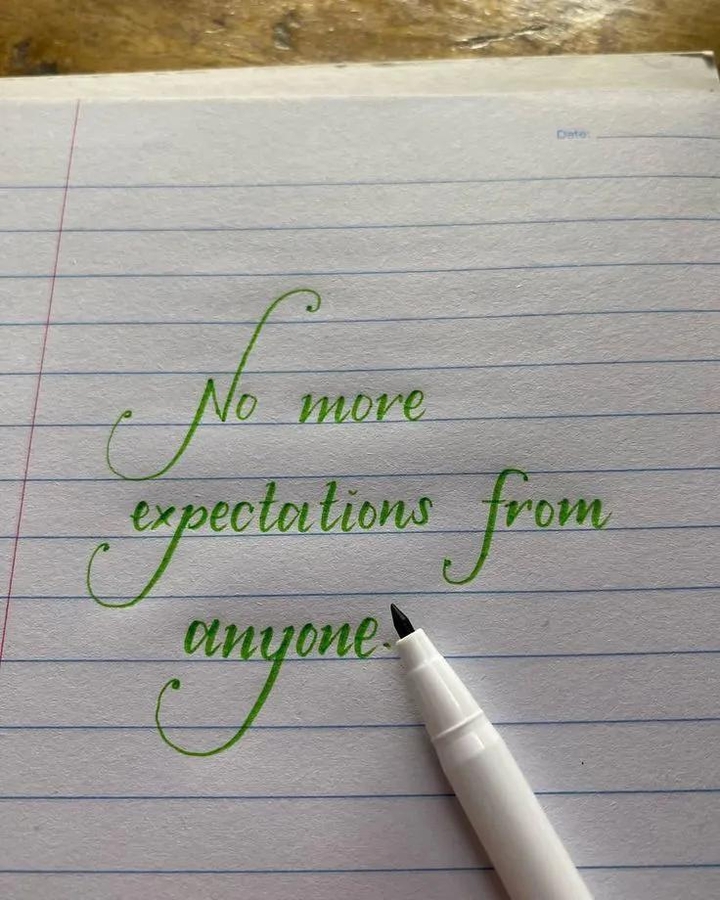 Date:
No more
expectations from
anyone.